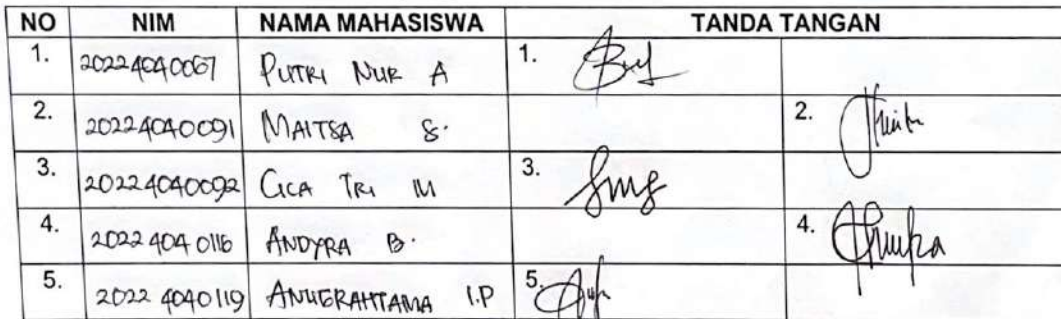 NO NIM NAMA MAHASISWA TANDA TANGAN
1. 20224040067 PUTRI NUR A 1.
2. 20224040091 MAITSA S. 2.
3. 20224040092 CICA TRI M 3.
4. 20224040116 ANDYRA B. 4.
5. 20224040119 ANUGERAHTAMA I.P 5.